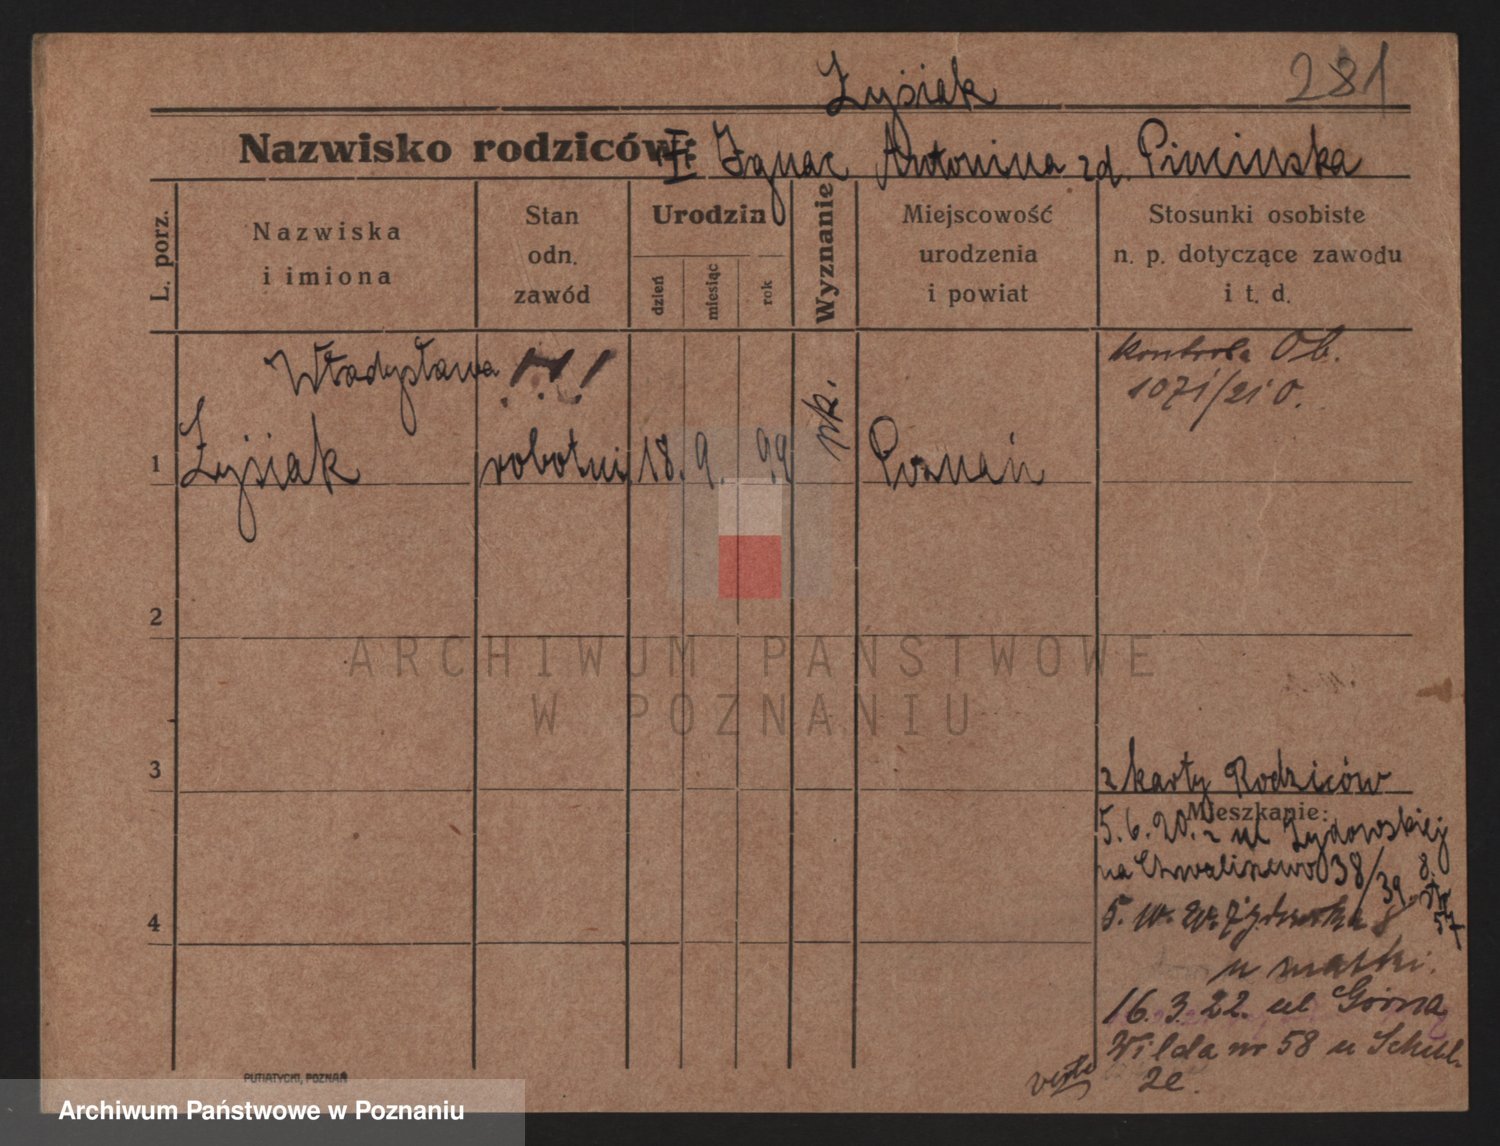 Łysiak
281
Nazwisko rodziców: Ignac Antonina zd.
L. porz.
Nazwiska
i imiona
Stan
odn.
zawód
Urodzin
dzień
miesiąc
rok
Wyznanie
Miejscowość
urodzenia
i powiat
Stosunki osobiste
n. p. dotyczące zawodu
i t. d.
kontrola
Władysława
1 Łysiak robotni 18. 9. 99 Poznań
2
ARCHIWUM PAŃSTWOWE
W POZNANIU
3
z karty Rodziców
Mieszkanie:
5.6.20. z ul Żydowskiej
na Chwaliszewo 38/39
4
u matki.
16.3.22. ul Górna
Wilda nr 58 u
verte
PUTIATYCKI, POZNAŃ
Archiwum Państwowe w Poznaniu